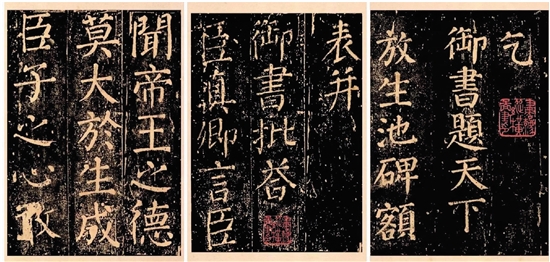 乞
御書題天下
放生池碑額
表并
御書批荅
臣眞卿言臣
聞帝王之德
莫大於生成
臣子之心敢